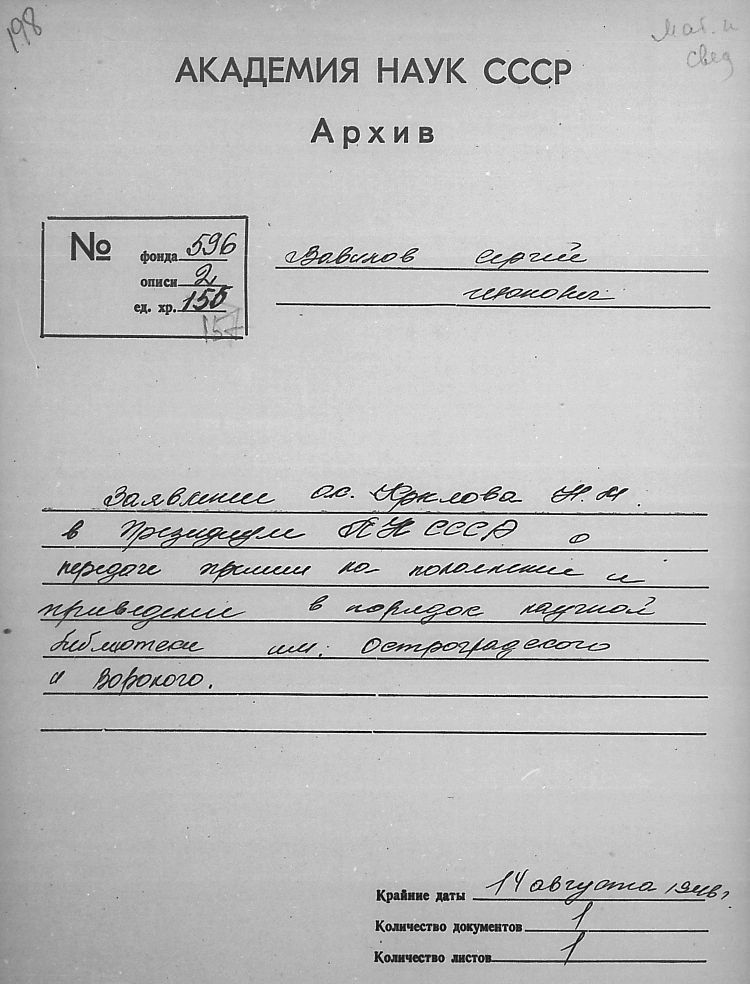 198
Мат. и
свед
АКАДЕМИЯ НАУК СССР
Архив
№
фонда 596
описи 2
ед. хр. 155
157
Вавилов Сергей
Иванович
Заявление ак. Крылова Н.М.
в Президиум АН СССР о
передаче премии на пополнение и
приведение в порядок научной
библиотеки им. Остроградского
и Вороного.
Крайние даты 14 августа 1946 г.
Количество документов 1
Количество листов 1